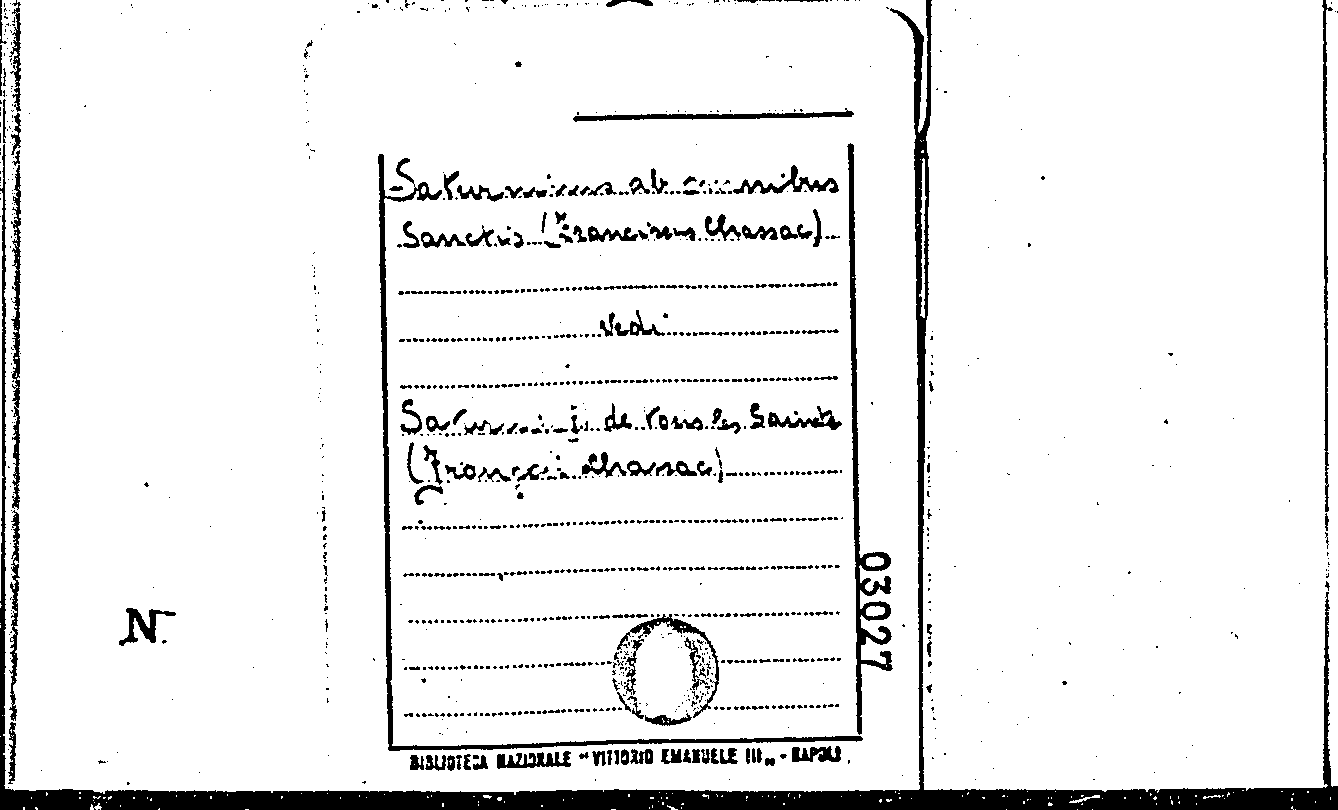 Saturninus ab omnibus
Sanctis (Franciscus Chassac)
Vedi
Saturnin de tous les Saints
(François Chassac)
03027
N.
BIBLIOTECA NAZIONALE "VITTORIO EMANUELE III" - NAPOLI